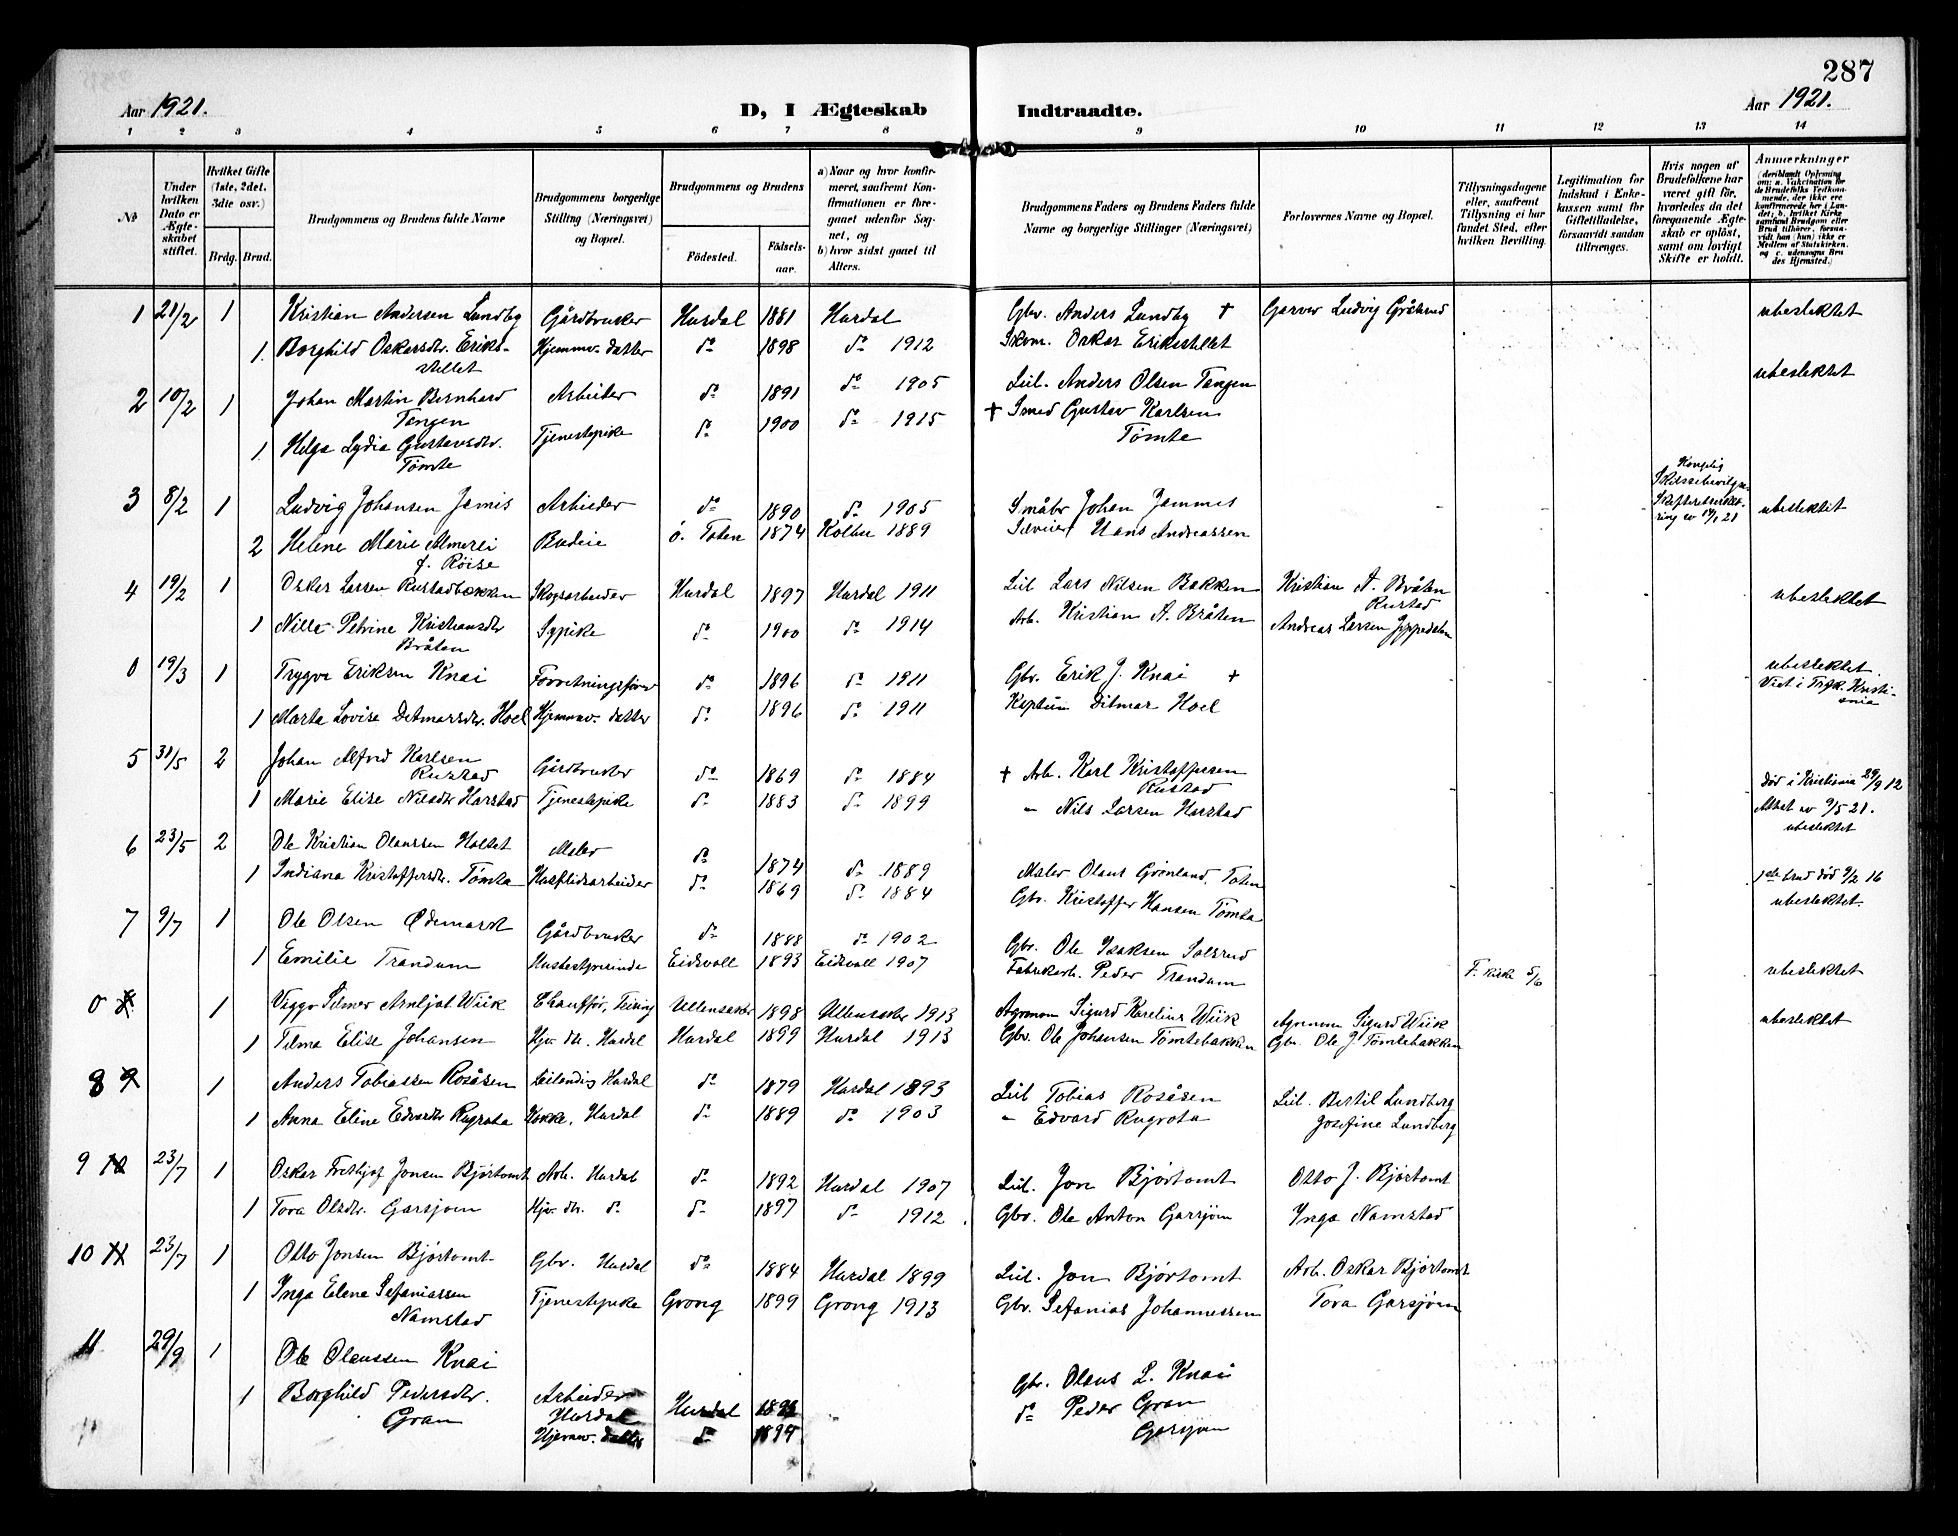 287
Aar 1921.
D, I Ægteskab Indtraadte.
Aar 1921.
1 2 3 4 5 6 7 8 9 10 11 12 13 14
No
Under hvilken Dato er Ægteskabet stiftet.
Hvilket Gifte (1ste, 2det, 3die osv.)
Brdg. Brud.
Brudgommens og Brudens fulde Navne
Brudgommens borgerlige Stilling (Næringsvei) og Bopæl.
Brudgommens og Brudens
Födested.
Födselsaar.
a) Naar og hvor konfirmeret, saafremt Konfirmationen er foregaaet udenfor Sognet, og
b) hvor sidst gaaet til Alters.
Brudgommens Faders og Brudens Faders fulde Navne og borgerlige Stillinger (Næringsvei)
Forlovernes Navne og Bopæl.
Tillysningsdagene eller, saafremt Tillysning ei har fundet Sted, efter hvilken Bevilling.
Legitimation for Indskud i Enkekassen samt for Giftetilladelse, forsaavidt saadan tiltrænges.
Hvis nogen af Brudefolkene har været gift för, hvorledes da det foregaaende Ægteskab er oplöst, samt om lovligt Skifte er holdt.
Anmerkninger
1 21/2 1 Kristian Andersen Lundby Gårdbruker Hurdal 1881 Hurdal Gbr. Anders Lundby + Garver Ludvig Gråbrud ubeslektet
1 Borghild Oskarsdtr. Eriks- Hjemmev. datter do 1898 do 1912 Skom. Oskar Erikstellet
stellet
2 10/2 1 Johan Martin Bernhard Arbeider do 1891 do 1905 Leil. Anders Olsen Tangen ubeslektet
Tangen
1 Helga Lydia Gustavsdtr. Tjenestepike do 1900 do 1915 + Smed Gustav Karlsen
Tömte Tømte
3 8/2 1 Ludvig Johansen Jamis Arbeider do 1890 do 1905 Småbr Johan Jammes Kongelig ubeslektet
2 Helene Marie Almerei Budeie Ö. Toten 1874 Kolbu 1889 Hans Andreassen
f. Röise
4 19/2 1 Oskar Larsen Rustadbakken Skogsarbeider Hurdal 1897 Hurdal 1911 Leil Lars Nilsen Bakken Kristian A. Bråten ubeslektet
Rustad
1 Nille Petrine Kristiansdtr Sypike do 1900 do 1914 Arb. Kristian A. Bråten Andreas Larsen Jeppedalen
Bråten
0 19/3 1 Trygve Eriksen Knai Forretningsfører do 1896 do 1911 Gbr. Erik J. Knai + ubeslektet
1 Marta Lovise Detmarsdtr. Hoel Hjemmev. datter do 1896 do 1911 Kaptein Ditmar Hoel Viet i Tr. Kristi-
ania
5 31/5 2 Johan Alfred Karlsen Gårdbruker do 1869 do 1884 + Arb. Karl Kristoffersen død i Kristiania 29/9 12
Rustad Rustad
1 Marie Elise Nilsdtr Harstad Tjenestepike do 1883 do 1899 " Nils Larsen Harstad Attest av 9/5 21.
ubeslektet
6 23/5 2 Ole Kristian Olaussen Holtet Maler do 1874 do 1889 Maler Olaus Grönland, Toten 1ste brud död 9/2 16
1 Indiana Kristoffersdtr. Tömta Husflidsarbeider do 1869 do 1884 Gbr. Kristoffer Hansen Tömta ubeslektet.
7 9/7 1 Ole Olsen Ødemardt Gårdbruker do 1888 do 1902 Gbr. Ole Isaksen Solsrud
1 Emilie Trandum Husbestyrerinde Eidsvoll 1893 Eidsvoll 1907 Fabrikarb. Peder Trandum 5/6 ubeslektet
0 8 1 Viggo Hilmer Arnljot Wiik Chauffør, Ullensaker 1898 Ullensaker 1913 Agronom Sigurd Karelius Wiik Agronom Sigurd Wiik ubeslektet
1 Tilma Elise Johansen Hjv. dtr. Hurdal Hurdal 1899 Hurdal 1913 Gbr. Ole Johansen Tömtebakken Gbr. Ole J Tömtebakken
8 9 1 Anders Tobiassen Rosåsen Leilending Hurdal do 1879 Hurdal 1893 Leil Tobias Rosåsen Leil. Bertil Lundberg
1 Anna Eline Edvardsdtr Rugrota Kokke. Hurdal do 1889 do 1903 " Edvard Rugrota Josefine Lundberg
9 10 23/7 1 Oskar Fridtjof Jonsen Bjørtomt Arb. Hurdal do 1892 Hurdal 1907 Leil. Jon Bjørtomt Otto J. Bjørtomt
1 Tora Olsdtr. Garsjøen Hjv. dtr. do do 1897 do 1912. Gbr. Ole Anton Garsjøen Inga Namstad
10 11 23/7 1 Otto Jonsen Bjørtomt Gbr. Hurdal do 1884 Hurdal 1899 Leil. Jon Bjørtomt Arb. Oskar Bjørtomt
1 Inga Elene Sefaniassen Tjenestepike Grong 1899 Grong 1913 Gbr. Sefanias Johannessen Tora Garsjøen
Namstad
11 29/9 1 Ole Olaussen Knai Arbeider Hurdal Gbr. Olaus L. Knai
Hurdal
1 Borghild Pedersdtr. Hjemmev. datter do 1894 do Peder Gran
Gran Garsjøen